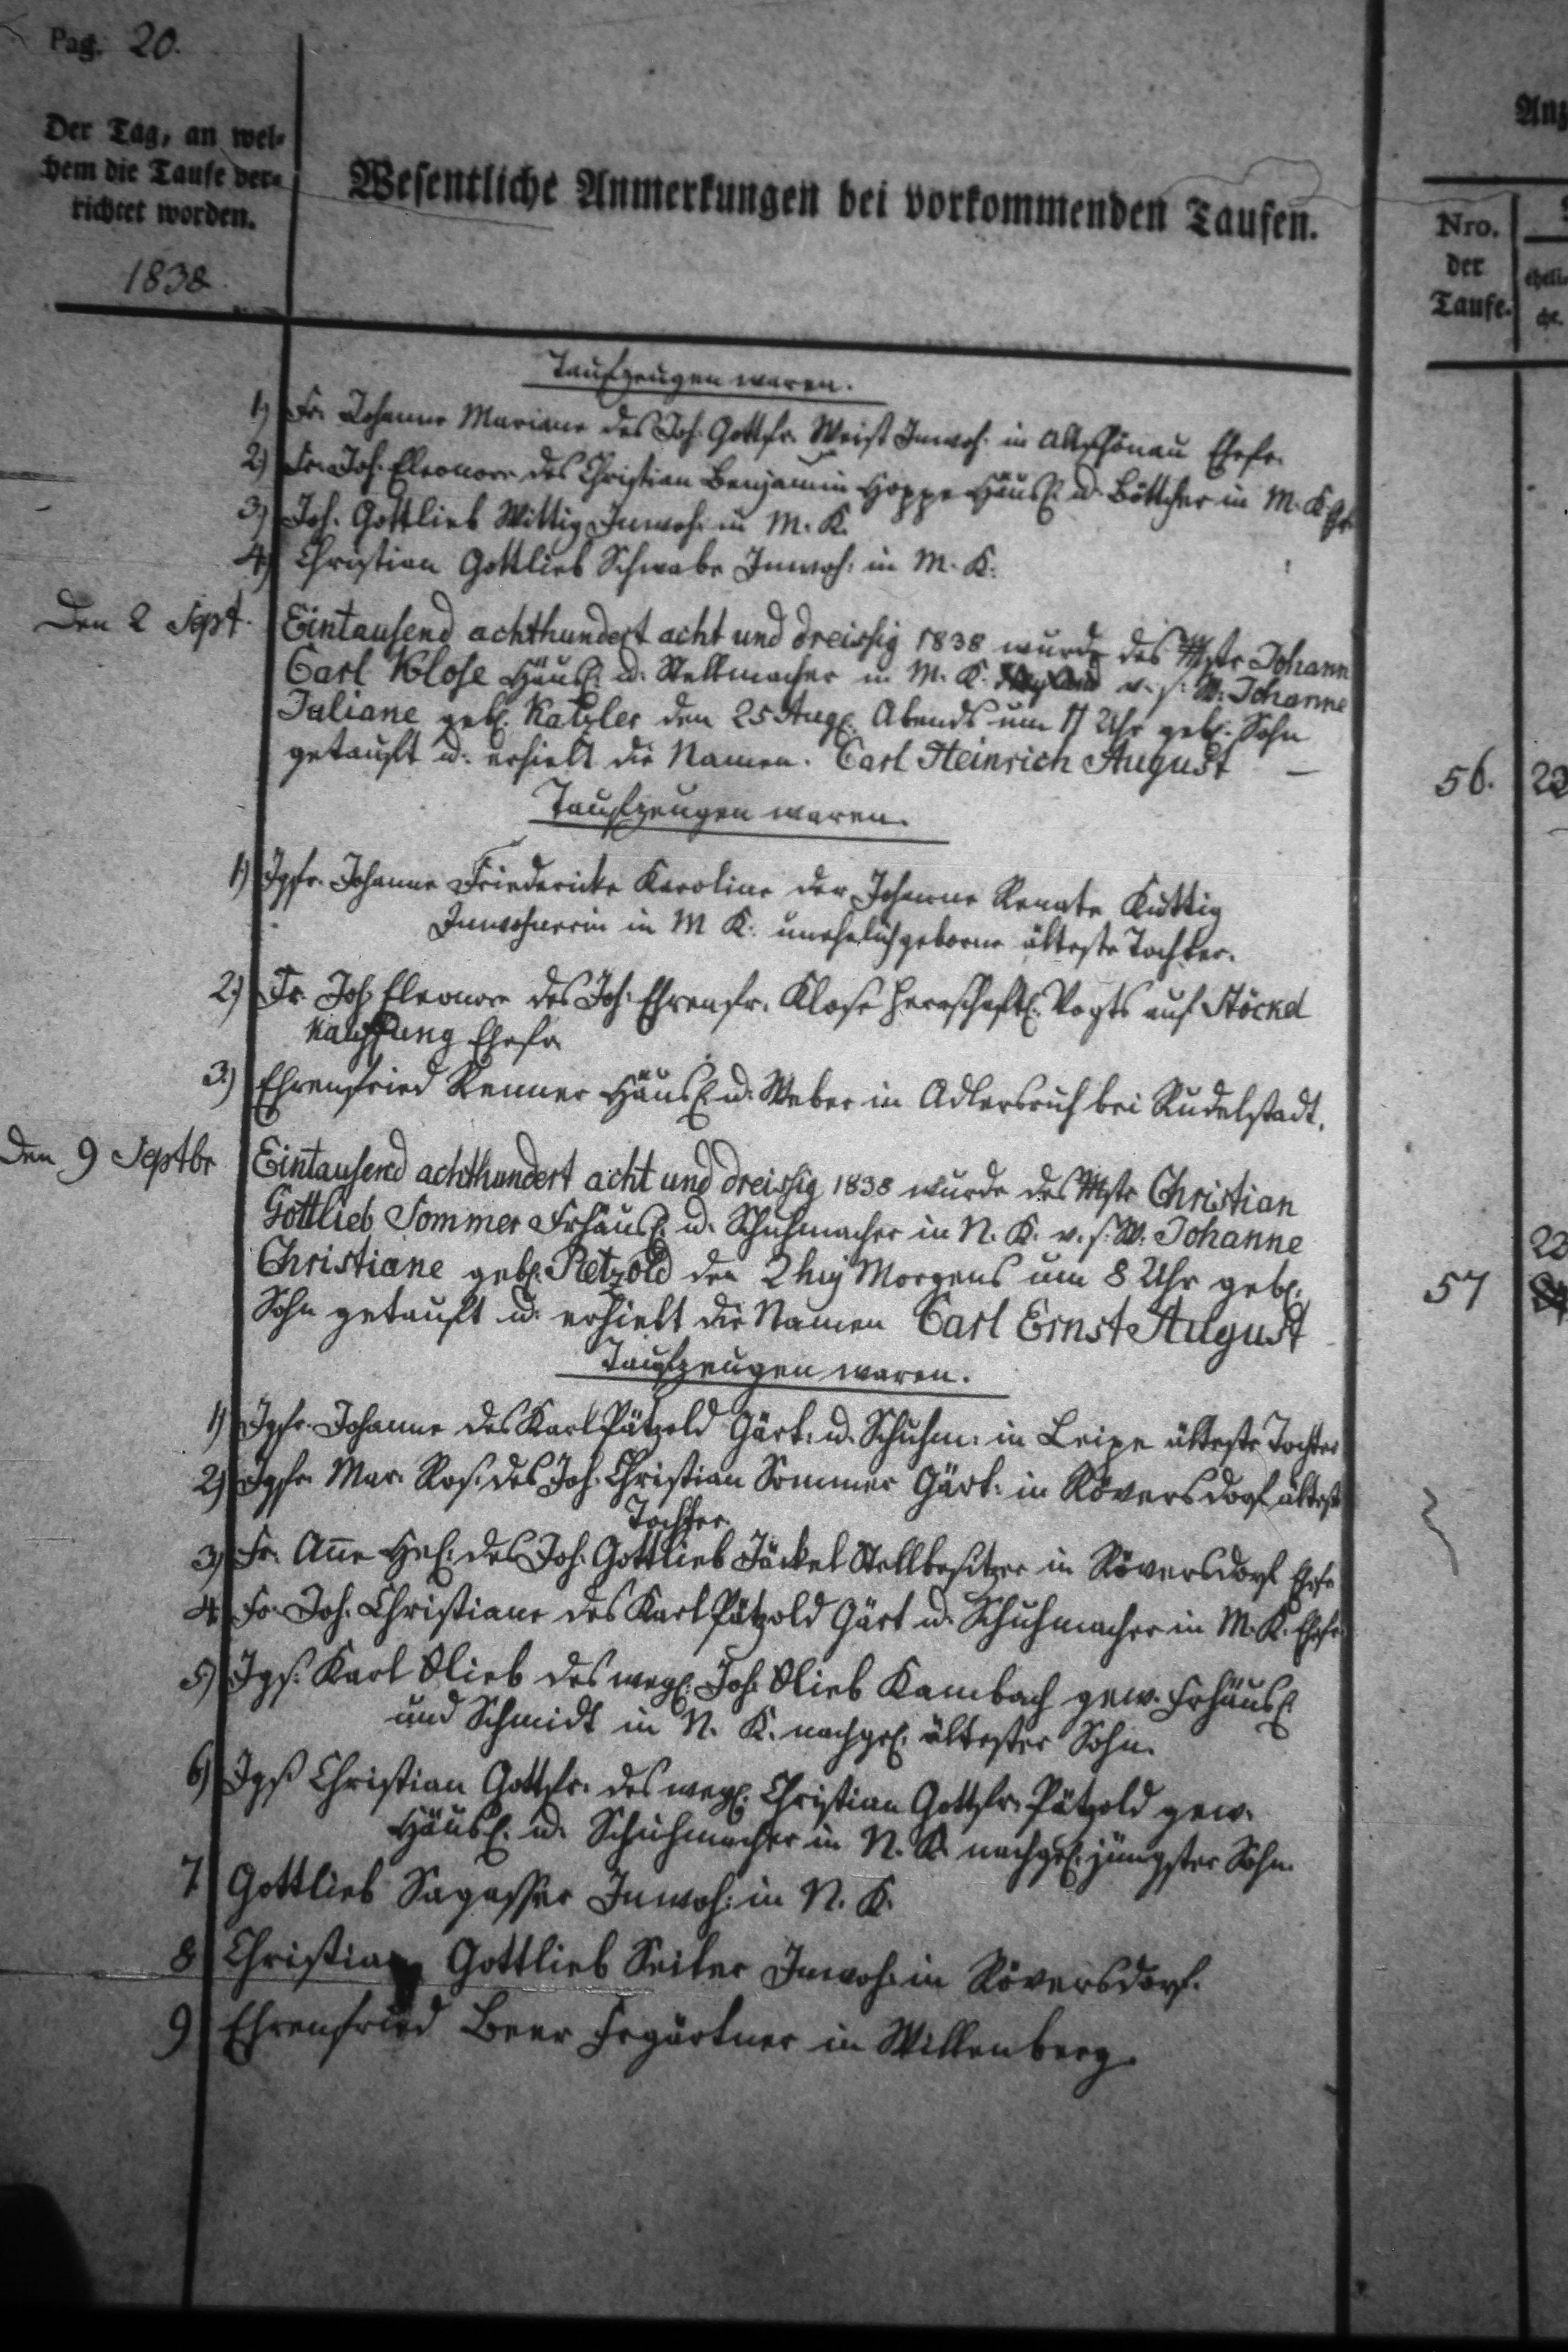 Pag. 20.
Der Tag, an wel-
chem die Taufe ver-
richtet worden.
1838.
Wesentliche Anmerkungen bei vorkommenden Taufen.
Nro.
der
Taufe.
Taufzeugen waren.
1) Fr. Johanne Mariane des Joh. Gottfr. Weist Inwoh. in Altschönau Ehefr.
2) Fr. Joh. Eleonore des Christian Benjamin Hoppe Häusl. u. Böttcher in M. K. Ehfr.
3) Joh. Gottlieb Wittig Inwoh. in M. K.
4) Christian Gottlieb Schwabe Inwoh: in M. K.
Den 2 Sept. Eintausend achthundert acht und dreissig 1838 wurde des Mstr Johann
Carl Klose Häusl. u. Stellmacher in M. K. v. s. W. Johanne
Juliane geb. Katzler den 25 Aug. Abends um 11 Uhr geb. Sohn
getauft u. erhielt die Namen. Carl Heinrich August — 56.
Taufzeugen waren.
1) Jgfr. Johanne Friedericke Karoline der Johanne Renate Küttig
Inwohnerin in M K. unehelich geborne älteste Tochter.
2) Fr. Joh. Eleonore des Joh. Ehrenfr. Klose herrschaftl. Vogts auf Stöckel
Kauffung Ehefr.
3.) Ehrenfried Renner Häusl. u. Weber in Adlersruh bei Rudelstadt.
Den 9 Septbr Eintausend achthundert acht und dreissig 1838 wurde des Mstr Christian
Gottlieb Sommer Frhäusl. u. Schuhmacher in N. K. v. s. W. Johanne
Christiane geb. Petzold den 2 huj Morgens um 8 Uhr geb. 57
Sohn getauft u. erhielt die Namen Carl Ernst August
Taufzeugen waren.
1) Jgfr. Johanne des Karl Pätzold Gärt. u. Schuhm. in Leipe älteste Tochter
2) Jgfr. Mar. Ros. des Joh. Christian Sommer Gärt: in Röversdorf älteste
Tochter.
3) Fr. Anne Hel. des Joh. Gottlieb Jäckel Stellbesitzer in Röversdorf Ehefr
4 Fr. Joh. Christiane des Karl Pätzold Gärt u. Schuhmacher in M. K. Ehefr.
5) Jgs. Karl Glieb des weyl. Joh. Glieb Kambach gew. Frhäusl.
und Schmidt in N. K. nachgel. ältester Sohn.
6) Jgs Christian Gottfr. des weyl. Christian Gottfr. Pätzold gew.
Häusl. u. Schuhmacher in N. K. nachgel. jüngster Sohn.
7 Gottlieb Sagasser Inwoh: in N. K.
8 Christian Gottlieb Seiler Inwoh. in Röversdorf.
9 Ehrenfried Beer Frgärtner in Willenberg.